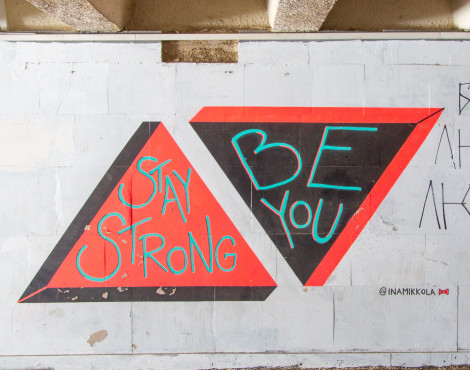 STAY
STRONG
BE
YOU
@INAMIKKOLA